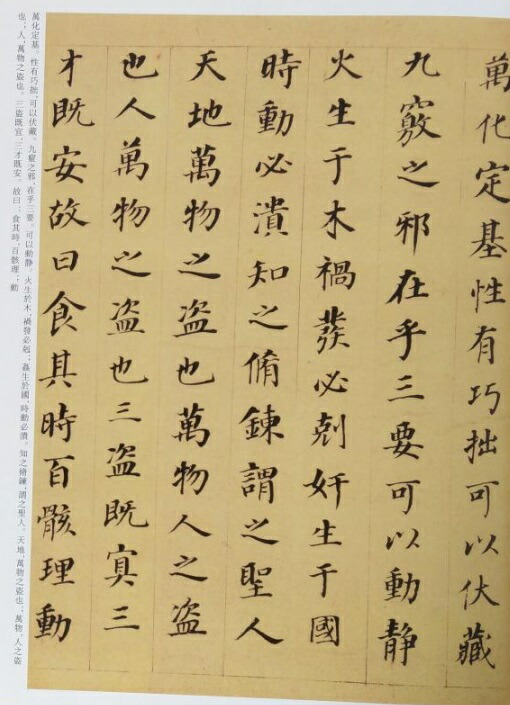 萬化定基性有巧拙可以伏藏
九竅之邪在乎三要可以動静
火生于木禍發必剋奸生于國
時動必潰知之脩鍊謂之聖人
天地萬物之盗也萬物人之盗
也人萬物之盗也三盗既冝三
才既安故曰食其時百骸理動
萬化定基。性有巧拙,可以伏藏。九竅之邪,在乎三要。可以動静。火生於木,禍發必剋;蟲生於國,時動必潰。知之脩鍊,謂之聖人。天地,萬物之盗也;萬物,人之盗
也;人,萬物之盗也。三盗既宜,三才既安。故曰:食其時,百骸理;動